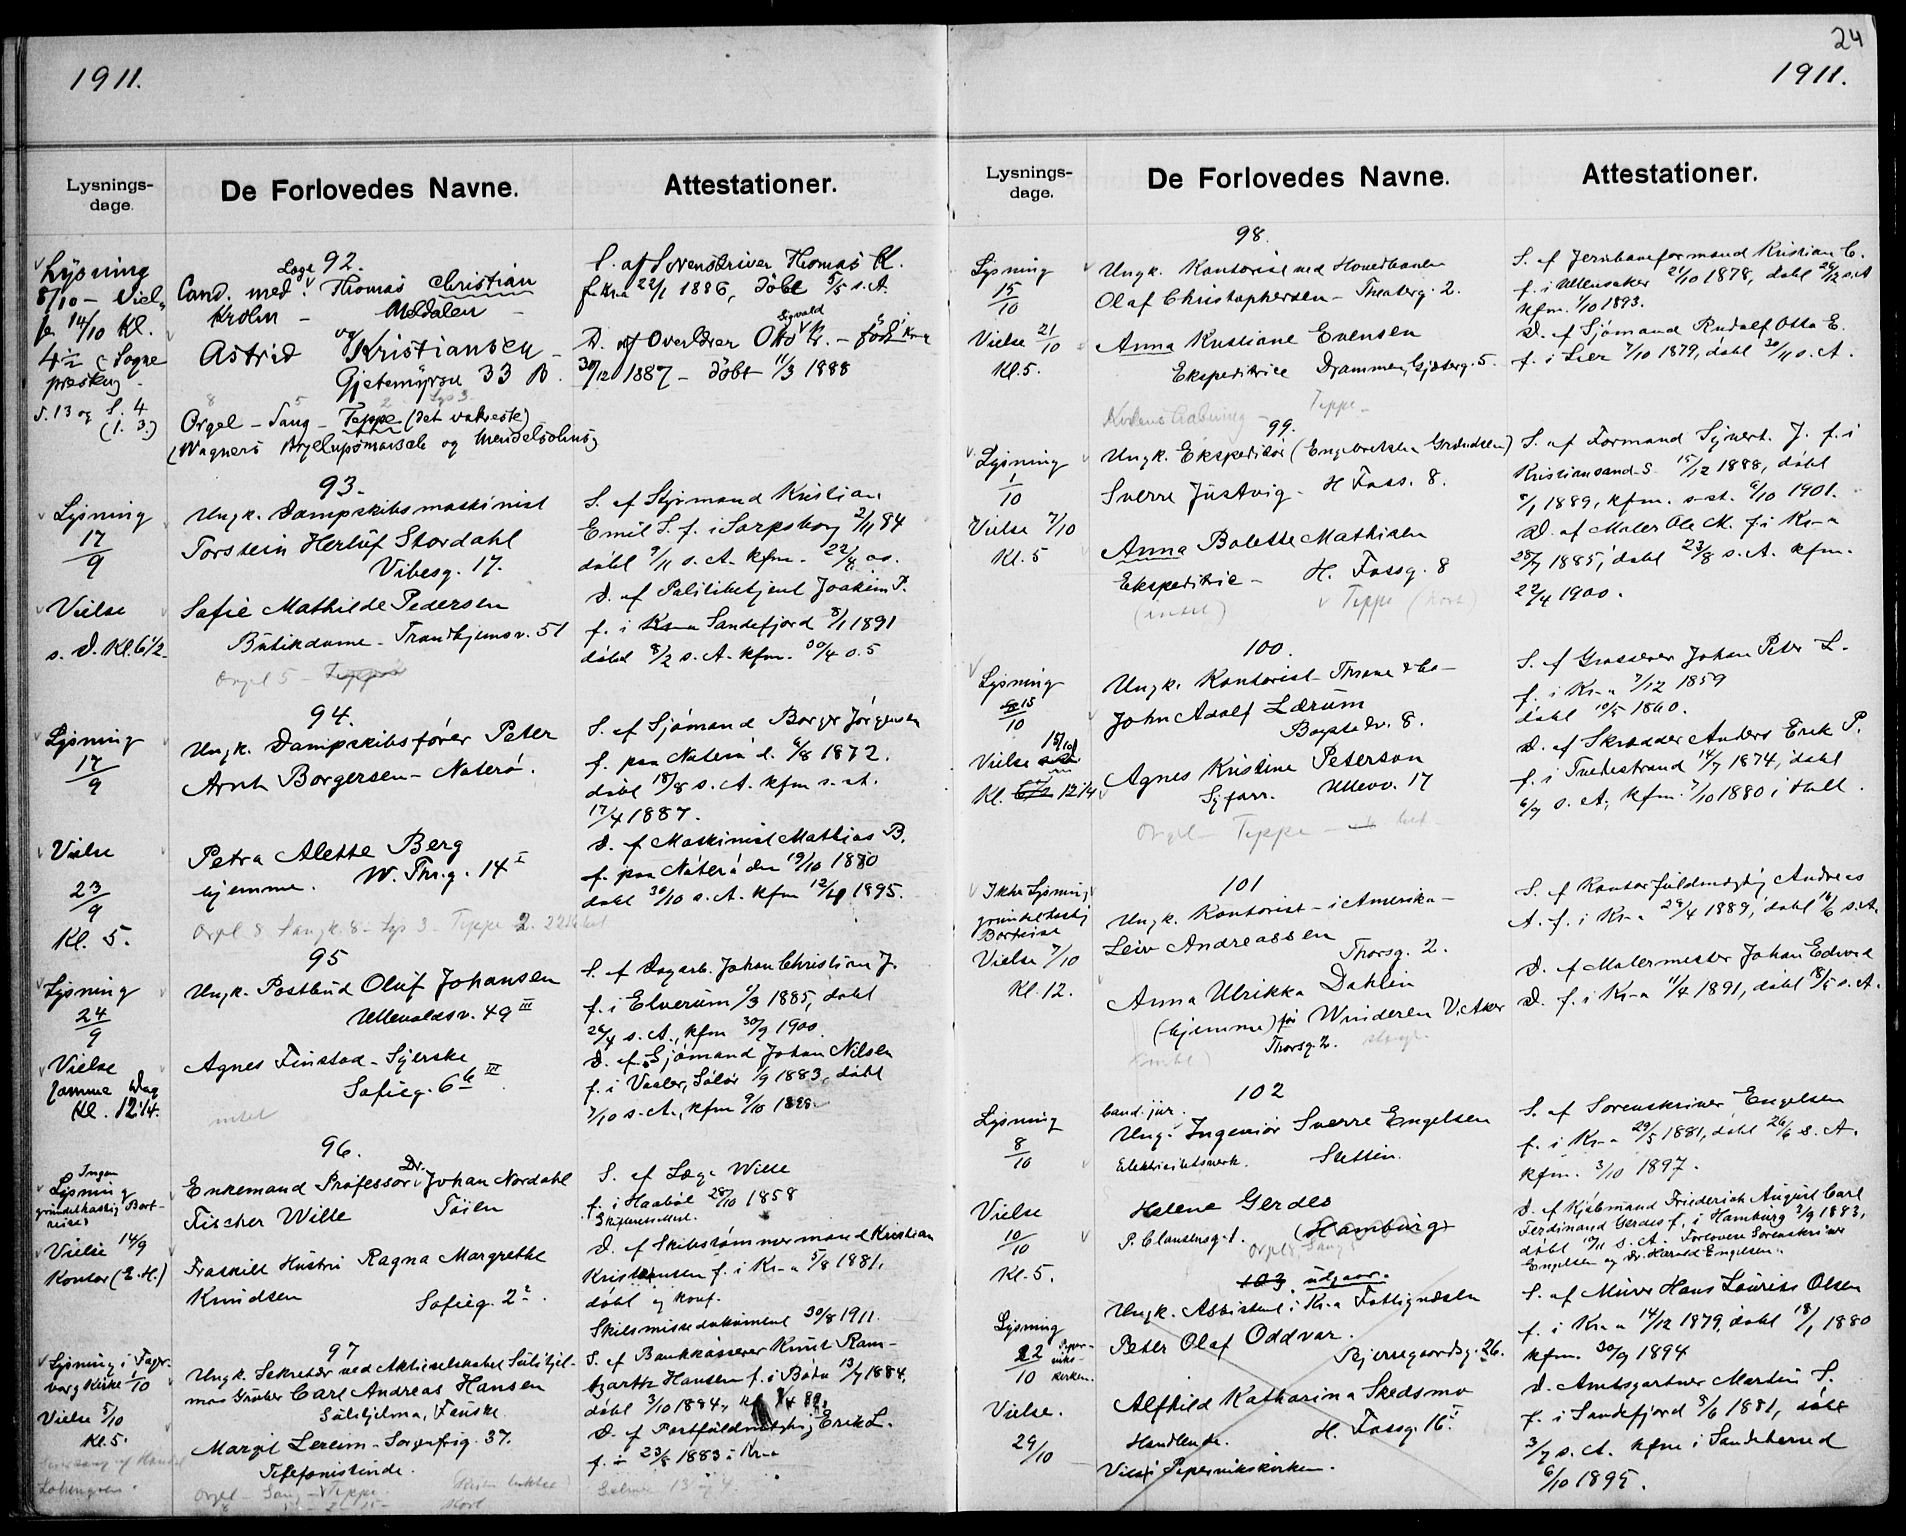 1911.
Lysnings-
dage.
De Forlovedes Navne.
Attestationer.
92.
Lysning
8/10 - Viel.
14/10 Kl.
4 1/2 Sogne
S. 13 og S. 4
(1. 3.)
Cand. med. Thomas Christian
Krohn - Meldalen -
og
Astrid Kristiansen -
Gjetemyrsv. 33 B.
Orgel - Sang - Teppe (det vakreste)
(Wagners Bryllupsmarsch og Mendelsohns)
S. af Sorenskriver Thomas K.
f. Kr.a 22/1 1886, døbt 5/5 s. A.
Sigvald
D. af Overlærer Otto K. - født Kra
30/12 1887 - døbt 11/3 1888
93.
Lysning
17
9
Vielse
s. D. Kl. 6 1/2
Ungk. Dampskibsmaskinist
Torstein Herluf Stordahl
Vibesg. 17.
Sofie Mathilde Pedersen
Butikdame - Trondhjemsv. 51
Orgel 5 -
S. af Styrmand Kristian
Emil S. f. i Sarpsborg 2/11 84
døbt 9/11 s. A. kfm. 22/4 00.
D. af Politibetjent Joakim P.
f. i Sandefjord 8/1 1891
døbt 8/2 s. A. kfm. 30/4 05
94.
Lysning
17
9
Vielse
23
9
Kl. 5.
Ungk. Dampskibsfører Peter
Arnt Borgersen - Nøterø.
Petra Alette Berg
hjemme. W. Thr.g. 14 I
Orgel 8 Sang k. 8 - Lys 3 - Teppe 2.
S. af Sjømand Borger Jørgensen
f. paa Nøterø d. 6/8 1872.
døbt 18/8 s. A. kfm s. st.
17/4 1887.
D. af Maskinist Mathias B.
f. paa Nøterø den 19/10 1880
døbt 30/10 s. A. kfm 1895.
95
Lysning
24
9
Vielse
samme Dag
Kl. 12 1/4.
Ungk. Postbud Oluf Johansen
Ullevoldsv. 49 III
Agnes Finstad - Syerske
Sofieg. 6 b III
intet
S. af Dagarb. Johan Christian J.
f. i Elverum 1/3 1885, døbt
26/4 s. A., kfm 30/9 1900.
D. af Sjømand Johan Nilsen
f. i Vaaler, Solør 1/9 1883, døbt
7/10 s. A., kfm 9/10 1898
96.
Ingen
Lysning
grundet hastig Bort-
reise
Vielse 14/9
Kontor (E. H.)
Dr.
Enkemand Professor Johan Nordahl
Fischer Wille Tøien
Fraskilt Hustru Ragna Margrethe
Knudsen Sofieg. 2
S. af Læge Wille
f. i Haabøl 28/10 1858
D. af Skibstømmermand Kristian
Kristiansen f. i Kr-a 5/8 1881,
døbt og konf.
Skilsmissedokument 30/8 1911.
97
Lysning i Fager-
borg Kirke 1/10
Vielse 5/10
Kl. 5.
Lohengrin.
Ungk. Sekretær ved Aktieselskabet Sulitjel-
ma Gruber Carl Andreas Hansen
Sulitjelma, Fauske.
Margit Lereim - Sorgenfrig. 37.
Telefonistinde.
Orgel - Sang - Teppe
S. af Bankkasserer Knut Ram-
Hansen f. i Bodø 13/7 1884,
døbt 3/10 1884,
D. af Postfuldmægtig Erik L.
f. 23/8 1883 i Kr-a
24
1911.
Lysnings-
dage.
De Forlovedes Navne.
Attestationer.
98.
Lysning
15
10
Vielse 21/10
Kl. 5.
Ungk. Kontorist ved Hovedbanen
Olaf Christophersen - Theaterg. 2.
Anna Kristiane Evensen
Ekspeditrice Drammen,
Teppe -
S. af Jernbaneformand Kristian C.
f. i Ullensaker 21/10 1878, døbt 26/12 s. A
kfm. 1/10 1893.
D. af Sjømand Rudolf Otto E.
f. i Lier 7/10 1879, døbt 30/11 s. A.
99.
Lysning
1
10
Vielse 7/10
Kl. 5
Ungk. Ekspeditør (Engebretsen Grændsen)
Sverre Justvig - H Foss. 8.
Anna Bolette Mathisen
Ekspeditrice - H. Fossg. 8
(intet) Teppe (kort)
S. af Formand Syvert J. f. i
Kristiansand S. 15/12 1888, døbt
1889, kfm. s. st. 6/10 1901.
D. af Maler Ole M. f i Kr-a
28/7 1885, døbt 23/8 s. A. kfm.
22/4 1900.
100.
Lysning
15
10
Vielse 15/10
Kl. 12 1/4
Ungk. Kontorist - Throne & Co -
John Adolf Lærum
Bogstadv. 8.
Agnes Kristine Peterson
Ullevv. 17
Orgel - Teppe -
S. af Grosserer Johan Peter L.
f. i Kr-a 7/12 1859
døbt 10/5 1860.
D. af Skrædder Anders Erik P.
f. i Tvedestrand 14/7 1874, døbt
6/9 s. A, kfm. 7/10 1880 i Holt.
101
Ikke Lysning
grundet hastig
Bortreise
Vielse 7/10
Kl. 12.
Ungk. Kontorist - i Amerika -
Leiv Andreassen
Thorsg. 2.
Anna Ulrikka Dahlin
(hjemme) før Winderen V. Aker
Thorsg. 2.
(intet)
S. af Kontorfuldmægtig Andreas
A. f. i Kr-a 29/4 1889, døbt 16/6 s. A.
D. af Malermester Johan Edvard
D. f. i Kr-a 11/4 1891, døbt 18/5 s. A.
102
Lysning
8
10
Vielse
10
10
Kl. 5.
Cand. jur.
Ung. Ingeniør Sverre Engelsen
Elektricitetsverk. Stettin.
Helene Gerdes
P. Clausensg. 1. (Hamburg)
Orgel 8, Sang 5
S. af Sorenskriver Engelsen
f. i Kr-a 29/5 1881, døbt 26/6 s. A.
kfm. 3/10 1897.
D. af Kjøbmand Friederich August Carl
Ferdinand Gerdes f. i Hamburg 3/9 1883,
døbt 10/11 s. A. Forlovere Sorenskriver
Engelsen og Dr. Harald Engelsen.
103. udgaar.
Lysning
22 Piper-
10 viks-
kirken.
Vielse.
29/10
Ungk. Assistent i Kr.a Fattigvæsen
Peter Olaf Oddvar.
Bjerregaardsg. 26.
Alfhild Katharina Skedsmo
Handlende. H. Fossg. 16 I
Vies i Piperviks kirken.
S. af Murer Hans Laurits Olsen
f. i Kr-a 14/12 1879, døbt 18/1 1880
kfm. 30/9 1894
D. Amtsgartner Martin S.
f. i Sandefjord 8/6 1881, døbt
3/7 s. A. kfm i Sandeherred
6/10 1895.